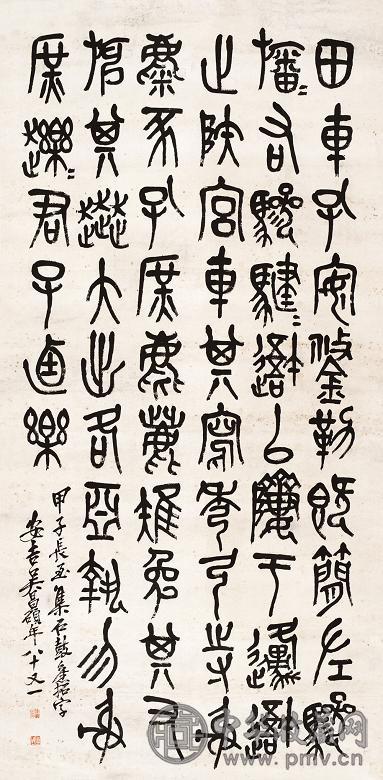 田車孔安鋚勒既簡左驂
旛〻右驂騝〻避以隮于邍避
止陝宮車其寫秀弓寺射
麋豕孔庶麀鹿雉兔其又
其大出各亞執勿射
庶趯〻君子逌樂
甲子長至集石鼓拓字
安吉吳昌碩年八十又一
www.pmv.cn